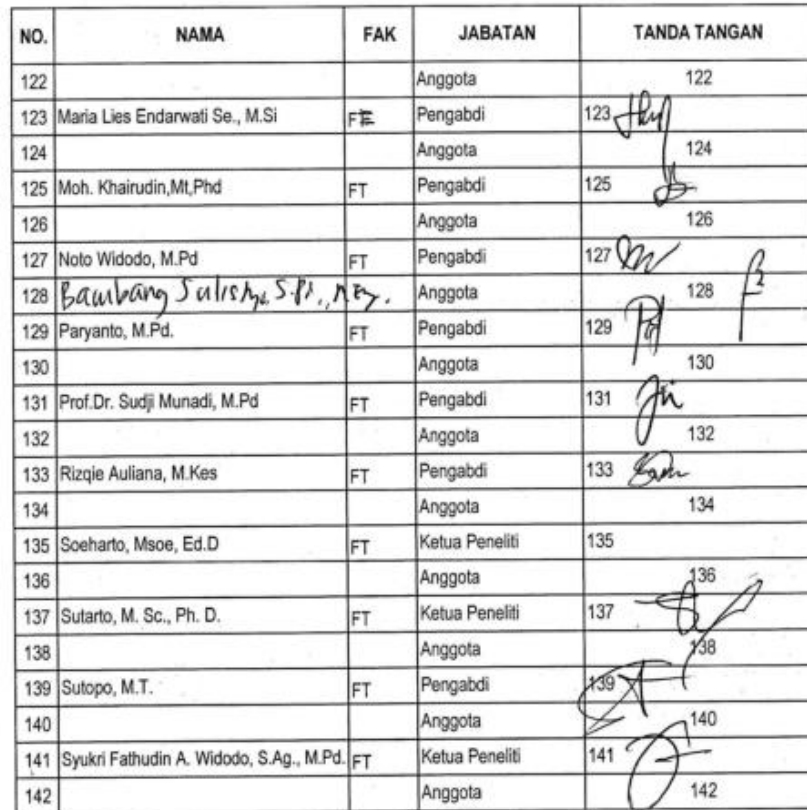 NO. NAMA FAK JABATAN TANDA TANGAN
122 Anggota 122
123 Maria Lies Endarwati Se., M.Si FE Pengabdi 123
124 Anggota 124
125 Moh. Khairudin,Mt,Phd FT Pengabdi 125
126 Anggota 126
127 Noto Widodo, M.Pd FT Pengabdi 127
128 Bambang Sulistyo, S.Pd., Anggota 128
129 Paryanto, M.Pd. FT Pengabdi 129
130 Anggota 130
131 Prof.Dr. Sudji Munadi, M.Pd FT Pengabdi 131
132 Anggota 132
133 Rizqie Auliana, M.Kes FT Pengabdi 133
134 Anggota 134
135 Soeharto, Msoe, Ed.D FT Ketua Peneliti 135
136 Anggota 136
137 Sutarto, M. Sc., Ph. D. FT Ketua Peneliti 137
138 Anggota 138
139 Sutopo, M.T. FT Pengabdi 139
140 Anggota 140
141 Syukri Fathudin A. Widodo, S.Ag., M.Pd. FT Ketua Peneliti 141
142 Anggota 142